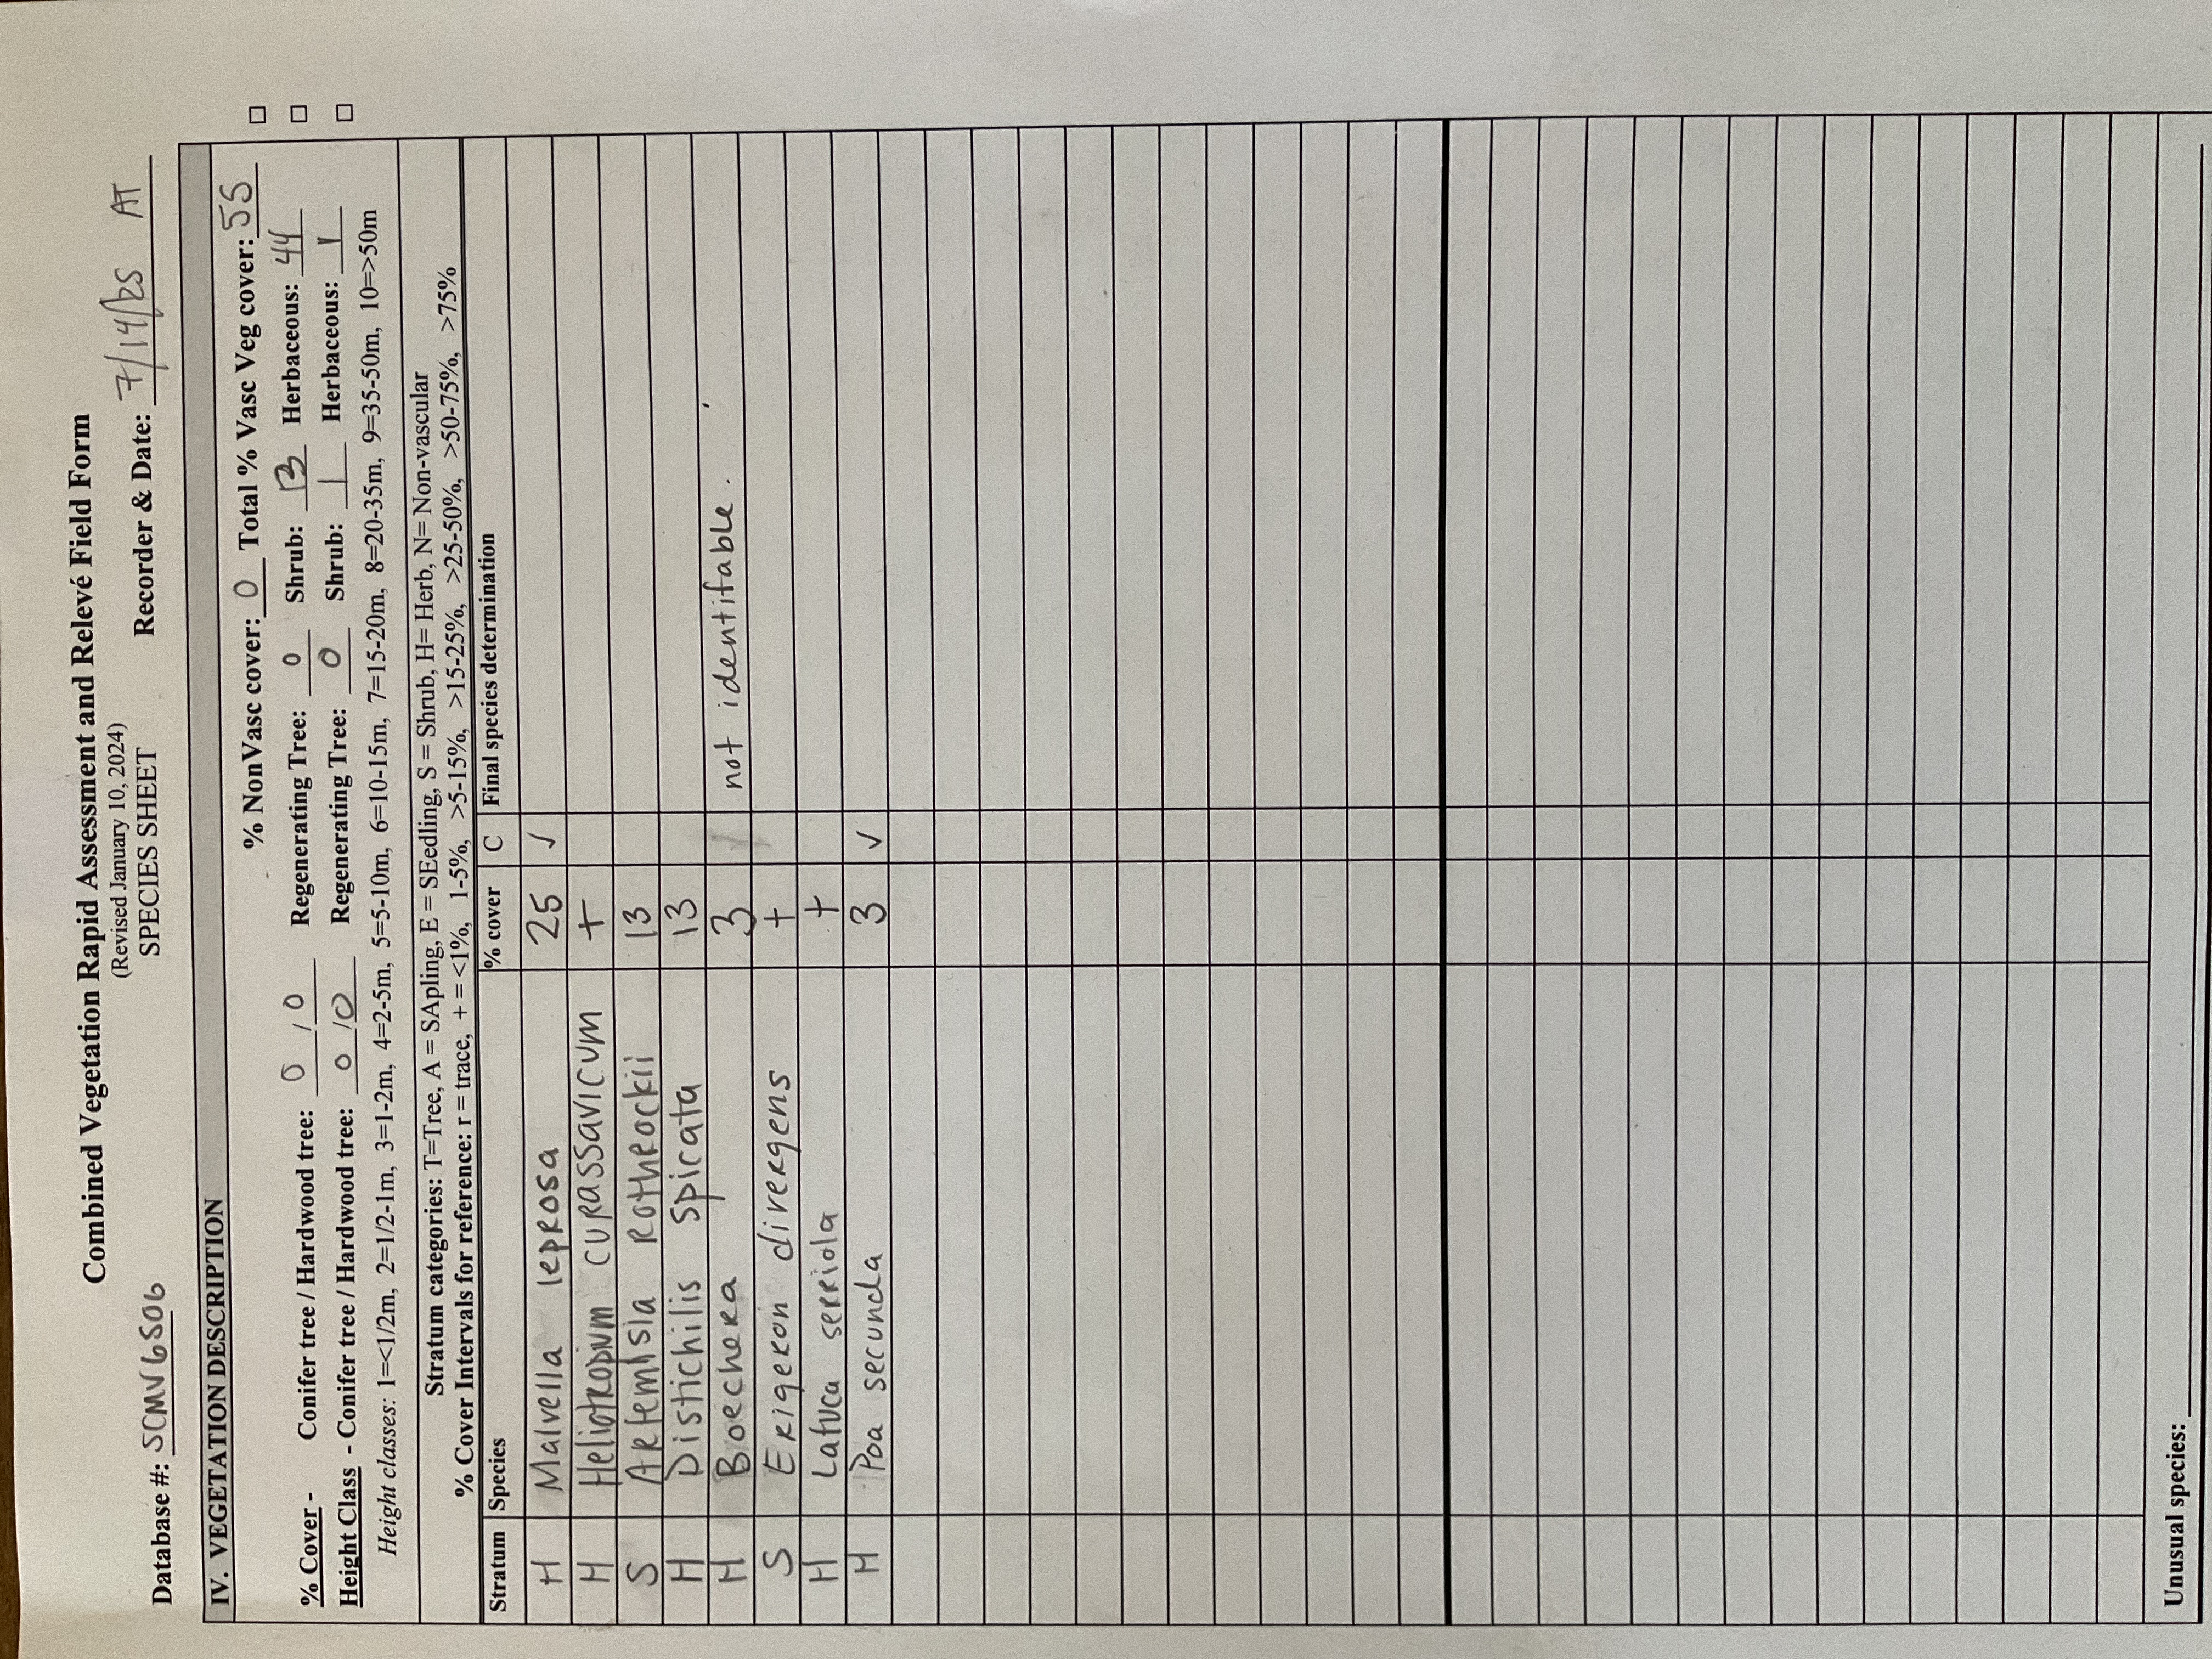 Combined Vegetation Rapid Assessment and Relevé Field Form
(Revised January 10, 2024)
SPECIES SHEET
Database #: SCMV6506 Recorder & Date: 7/14/25 AT
IV. VEGETATION DESCRIPTION
% NonVasc cover: 0 Total % Vasc Veg cover: 55
% Cover - Conifer tree / Hardwood tree: 0 / 0 Regenerating Tree: 0 Shrub: 13 Herbaceous: 44
Height Class - Conifer tree / Hardwood tree: 0 / 0 Regenerating Tree: 0 Shrub: 1 Herbaceous: 1
Height classes: 1=<1/2m, 2=1/2-1m, 3=1-2m, 4=2-5m, 5=5-10m, 6=10-15m, 7=15-20m, 8=20-35m, 9=35-50m, 10=>50m
Stratum categories: T=Tree, A = SApling, E = SEedling, S = Shrub, H= Herb, N= Non-vascular
% Cover Intervals for reference: r = trace, + = <1%, 1-5%, >5-15%, >15-25%, >25-50%, >50-75%, >75%
Stratum Species % cover C Final species determination
H Malvella leprosa 25 ✓
H Heliotropium curassavicum +
S Artemisia Rotherockii 13
H Distichilis spicata 13
H Boechera 3 not identifable.
S Erigeron divergens +
H Latuca serriola +
H Poa secunda 3 ✓
Unusual species: